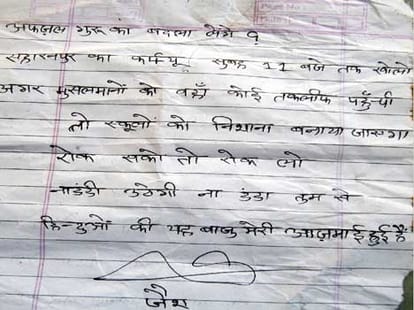 अफजल गुरू का बदला लेंगे ?
सहारनपुर का कर्फ्यू सुबह 11 बजे तक खोलो
अगर मुसलमानों को वहाँ कोई तकलीफ पहुँची
तो स्कूलों को निशाना बनाया जाएगा
रोक सको तो रोक लो
उठेगी ना डंडा तुम से
हिन्दुओं की यह बाजु मेरी आज़माई हुई हैं
जैश